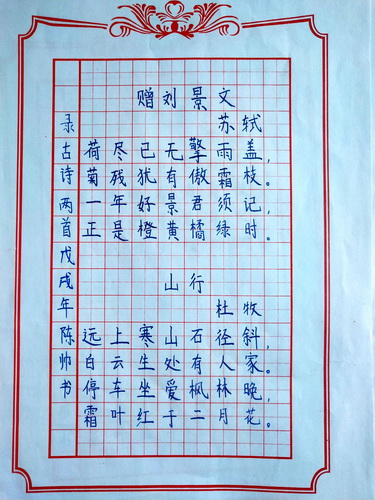 赠刘景文
苏轼
荷尽已无擎雨盖，
菊残犹有傲霜枝。
一年好景君须记，
正是橙黄橘绿时。
山行
杜牧
远上寒山石径斜，
白云生处有人家。
停车坐爱枫林晚，
霜叶红于二月花。
录古诗两首戊戌年陈帅书